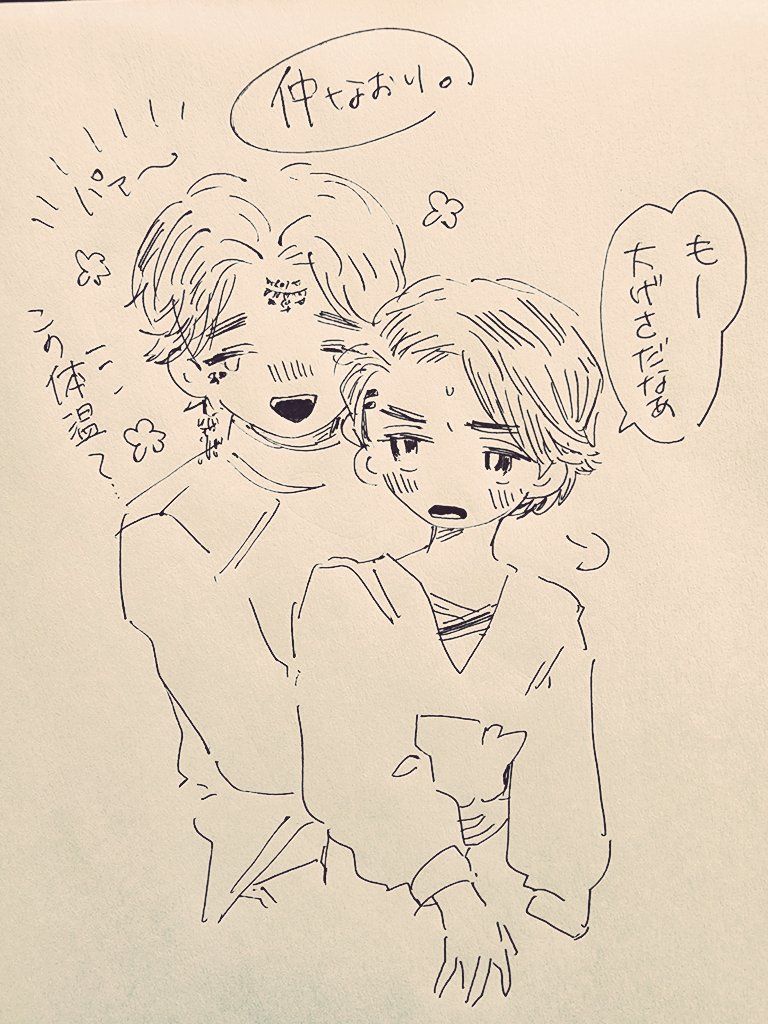 仲なおり。
パァ〜
もー
大げさだなぁ
この体温〜…